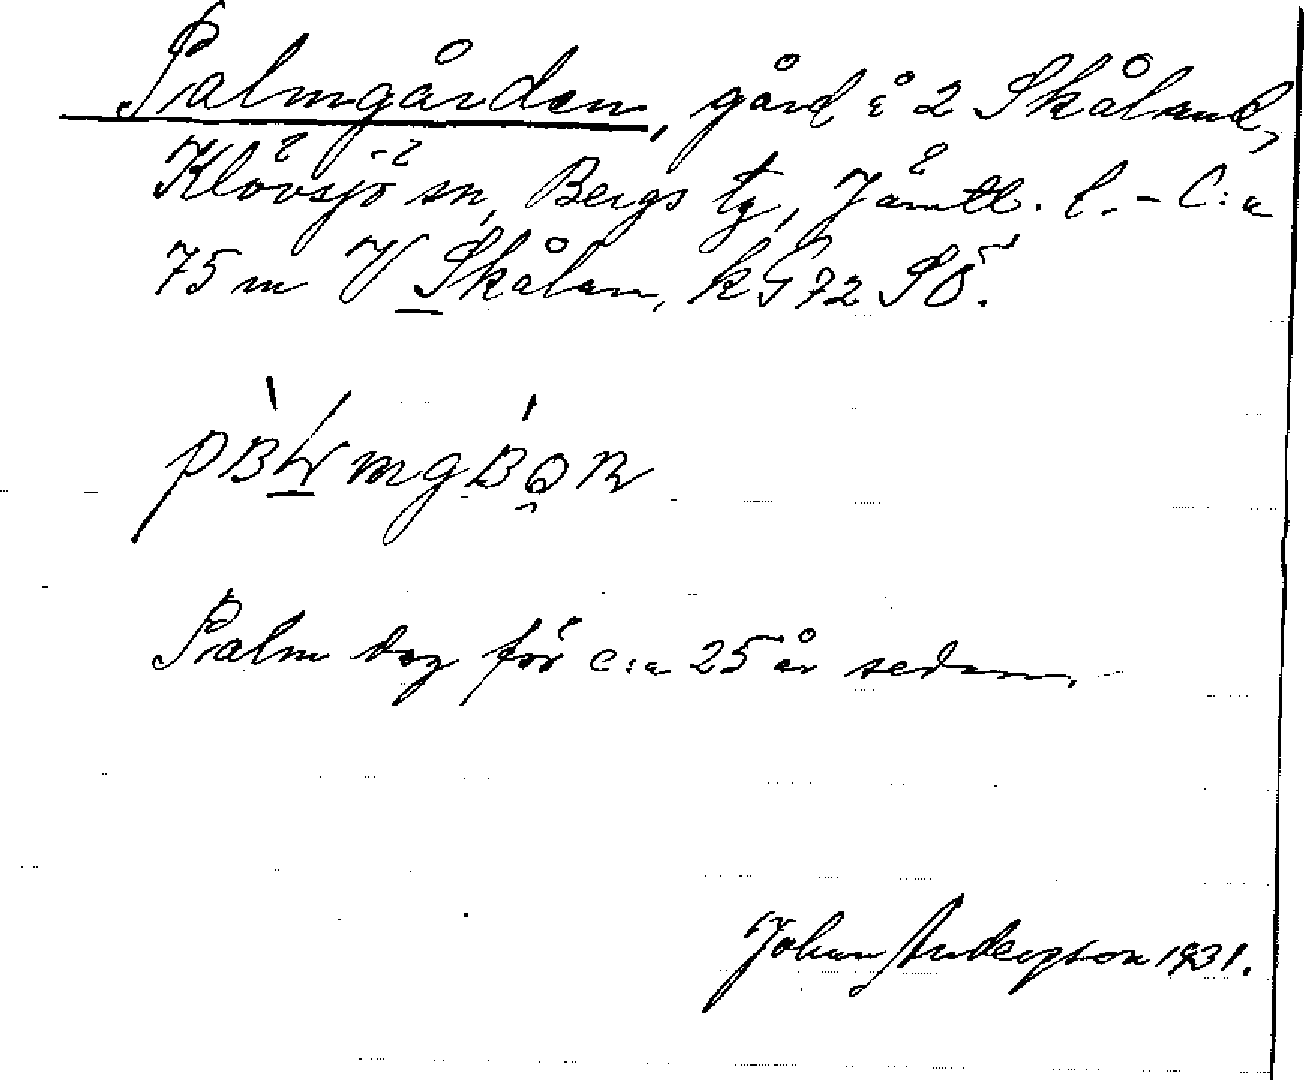 Palmgården, gård i 2 Skåland,
Klövsjö sn, Bergs tg, Jämtl. l. - C:a
75 m V Skålan, k G 72 SÖ.
Palm dog för c:a 25 år sedan.
Johan Andersson 1931.